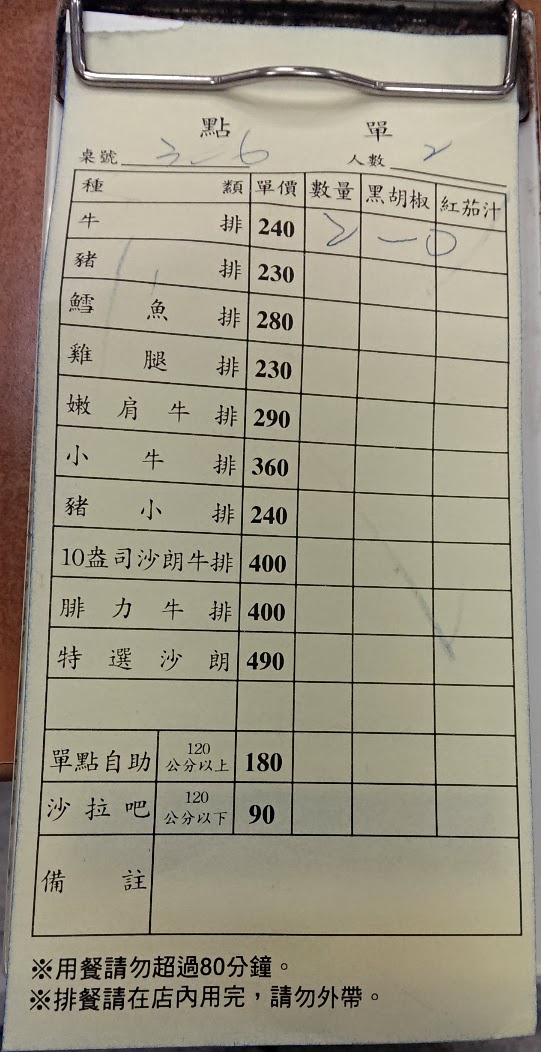 點 單
桌號 3-6 人數 2
種類 單價 數量 黑胡椒 紅茄汁
牛排 240 2 - 0
豬排 230
鱈魚排 280
雞腿排 230
嫩肩牛排 290
小牛排 360
豬小排 240
10盎司沙朗牛排 400
腓力牛排 400
特選沙朗 490
單點自助 120公分以上 180
沙拉吧 120公分以下 90
備註
※用餐請勿超過80分鐘。
※排餐請在店內用完,請勿外帶。